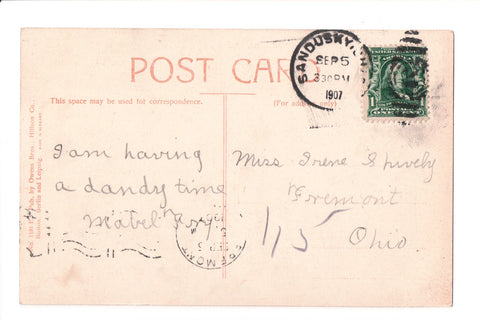 POST CARD
SANDUSKY, OHIO
SEP 5
330 PM
1907
This space may be used for correspondence.
(For address only).
1
ONE CENT
I am having
a dandy time
Mabel
Miss Irene Shively
Fremont
115
Ohio.
FREMONT
Pub. by Owens Bros., Hillson Co.,
Boston, Berlin and Leipzig.